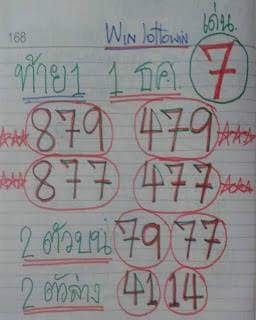 168 WIN lottowin เด่น.
ท้าย 1 1 ธค. 7
879 479
877 477
2 ตัวบน 79 77
2 ตัวล่าง 41 14